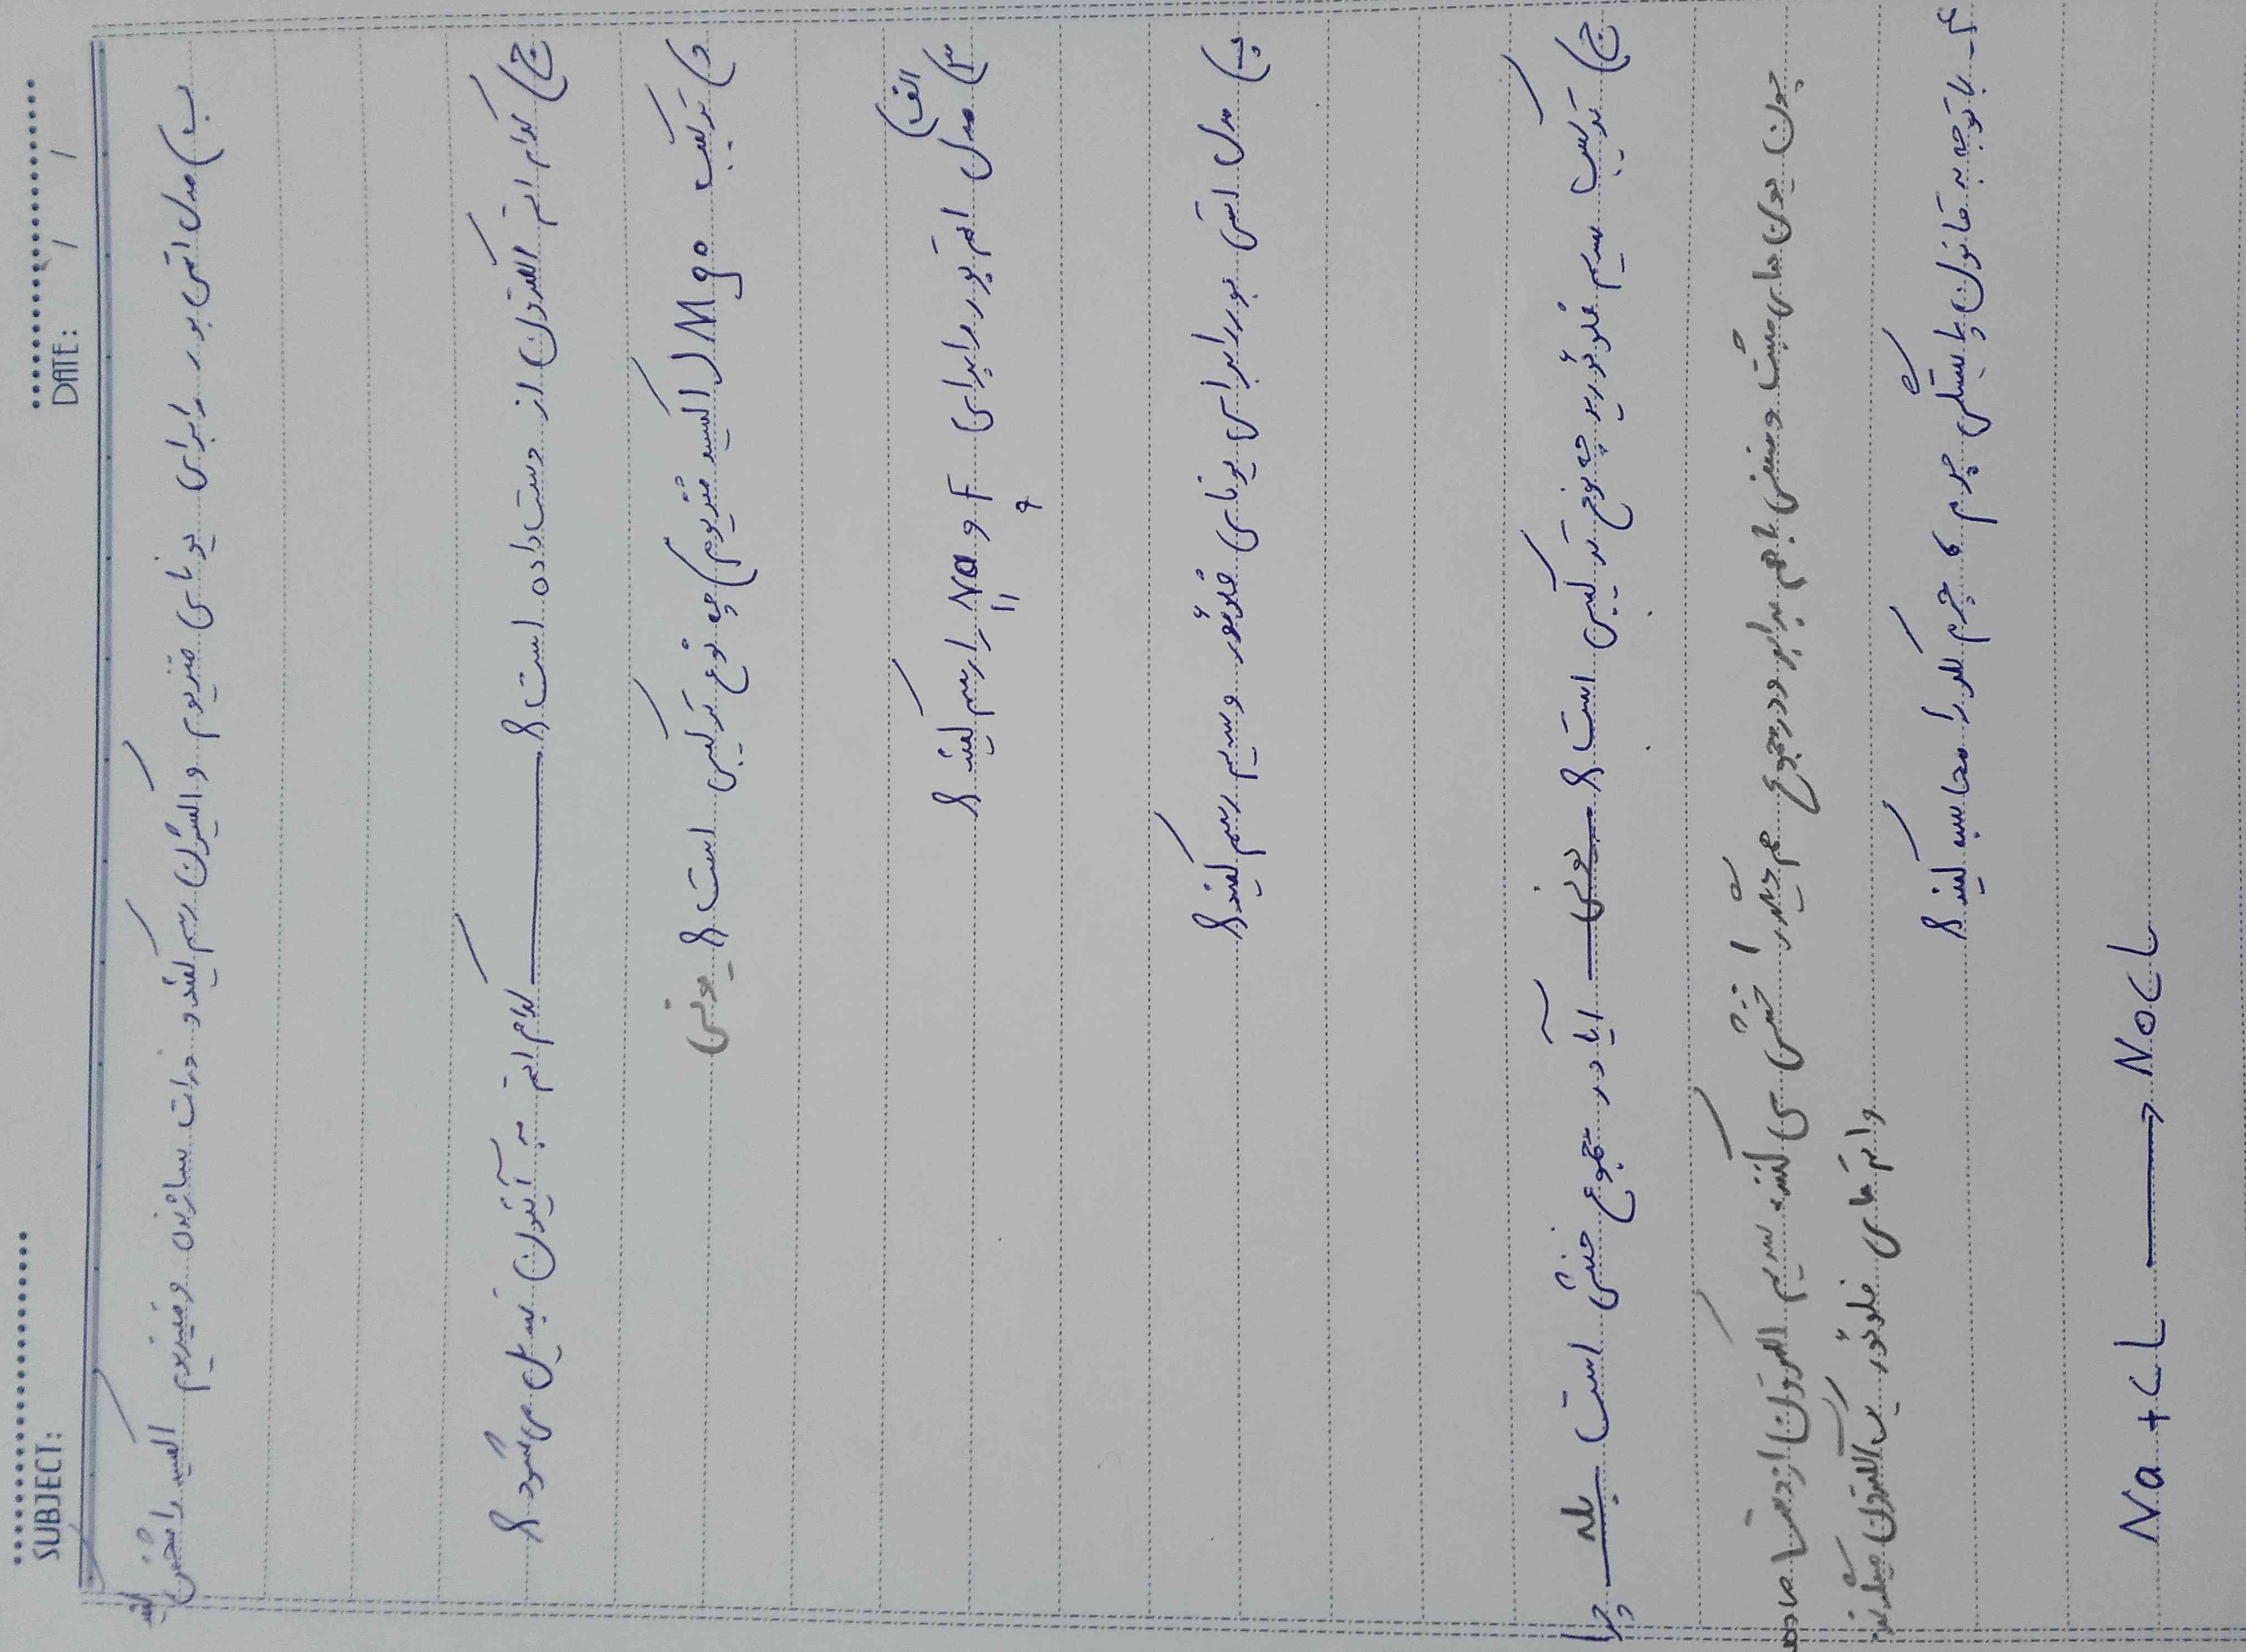 SUBJECT:
DATE: / /
ب) مدل اتمی بور را برای یونای منیزیم و اکسیژن رسم کنید و ذرات سازنده و منیزیم اکسید را مشخص کنید
ج) کدام اتم الکترون از دست داده است ؟ کدام اتم به آنیون تبدیل می شود ؟
د) ترکیب Mgo (اکسید منیزیوم) چه نوع ترکیبی است ؟ یونی
۳) الف) مدل اتم بور را برای F و Na را رسم کنید ؟
۹ ۱۱
ب) مدل اتمی بور را برای یونای فلوئور و سدیم رسم کنید ؟
ج) ترکیب سدیم فلوئورید چه نوع ترکیبی است ؟ یونی آیا در مجموع خنثی است بله چرا
چون یون های مثبت و منفی با هم برابر و در مجموع هم دیگر را خنثی می کنند سدیم الکترون از دست داده
و اتم های فلوئور یک الکترون میگیرند
۴- با توجه به قانون پایستگی جرم ، جرم کلر را محاسبه کنید ؟
Na + CL → NaCL